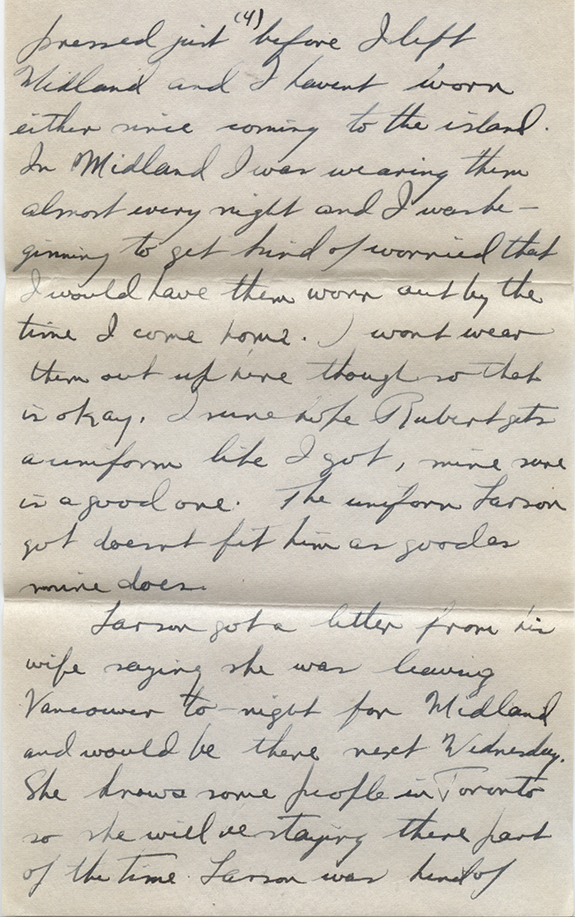 (4)
pressed just before I left
Midland and I havent worn
either since coming to the island.
In Midland I was wearing them
almost every night and I was be-
ginning to get kind of worried that
I would have them worn out by the
time I come home. I wont wear
them out up here though so that
is okay. I sure hope Rubert gets
a uniform like I got, mine sure
is a good one. The uniform Larson
got doesnt fit him as good as
mine does.
Larson got a letter from his
wife saying she was leaving
Vancouver to-night for Midland
and would be there next Wednesday.
She knows some people in Toronto
so she will be staying there part
of the time. Larson was kind of